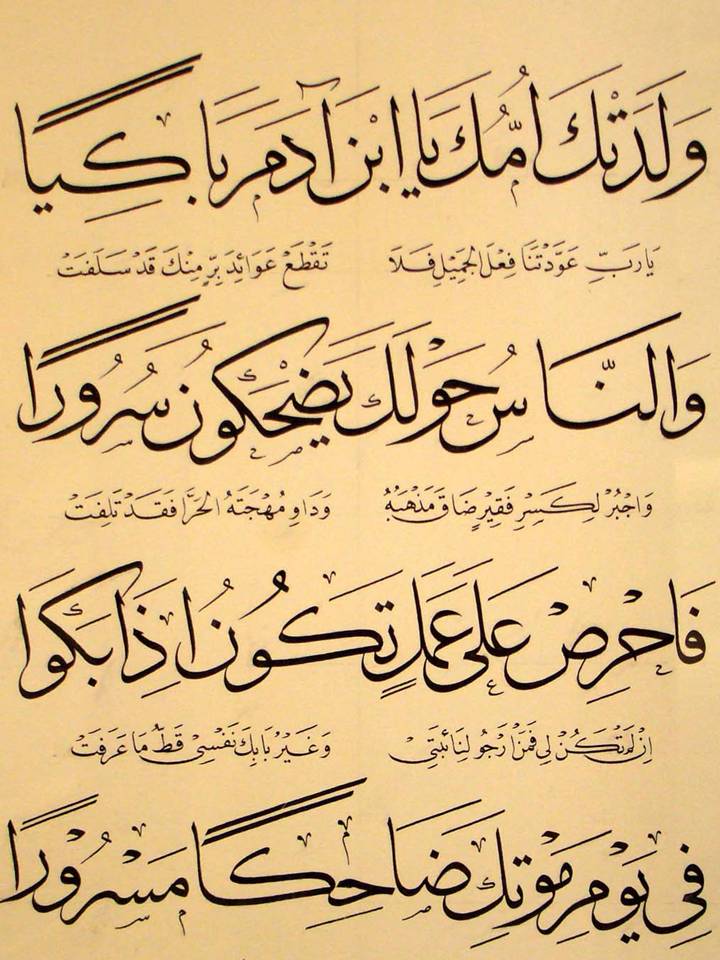 وَلَدَتْكَ اُمُّكَ يَا ابْنَ آدَمَ بَاكِيًا
يَا رَبِّ عَوَّدْتَنَا فِعْلَ الْجَمِيْلِ فَلَا تَقْطَعْ عَوَائِدَ بِرٍّ مِنْكَ قَدْ سَلَفَتْ
وَالنَّاسُ حَوْلَكَ يَضْحَكُونَ سُرُورًا
وَاجْبُرْ لِكَسِرِ فَقِيْرٍ ضَاقَ مَذْهَبُهُ وَدَاوِ مُهْجَتَهُ الْحَرَّا فَقَدْ تَلِفَتْ
فَاحْرِصْ عَلَى عَمَلٍ تَكُونُ اِذَا بَكَوْا
اِنْ لَمْ تَكُنْ لِي فَمَنْ اَرْجُو لِنَائِبَتِي وَغَيْرَ بَابِكَ نَفْسِي قَطُّ مَا عَرَفَتْ
فِي يَوْمِ مَوْتِكَ ضَاحِكًا مَسْرُوْرًا